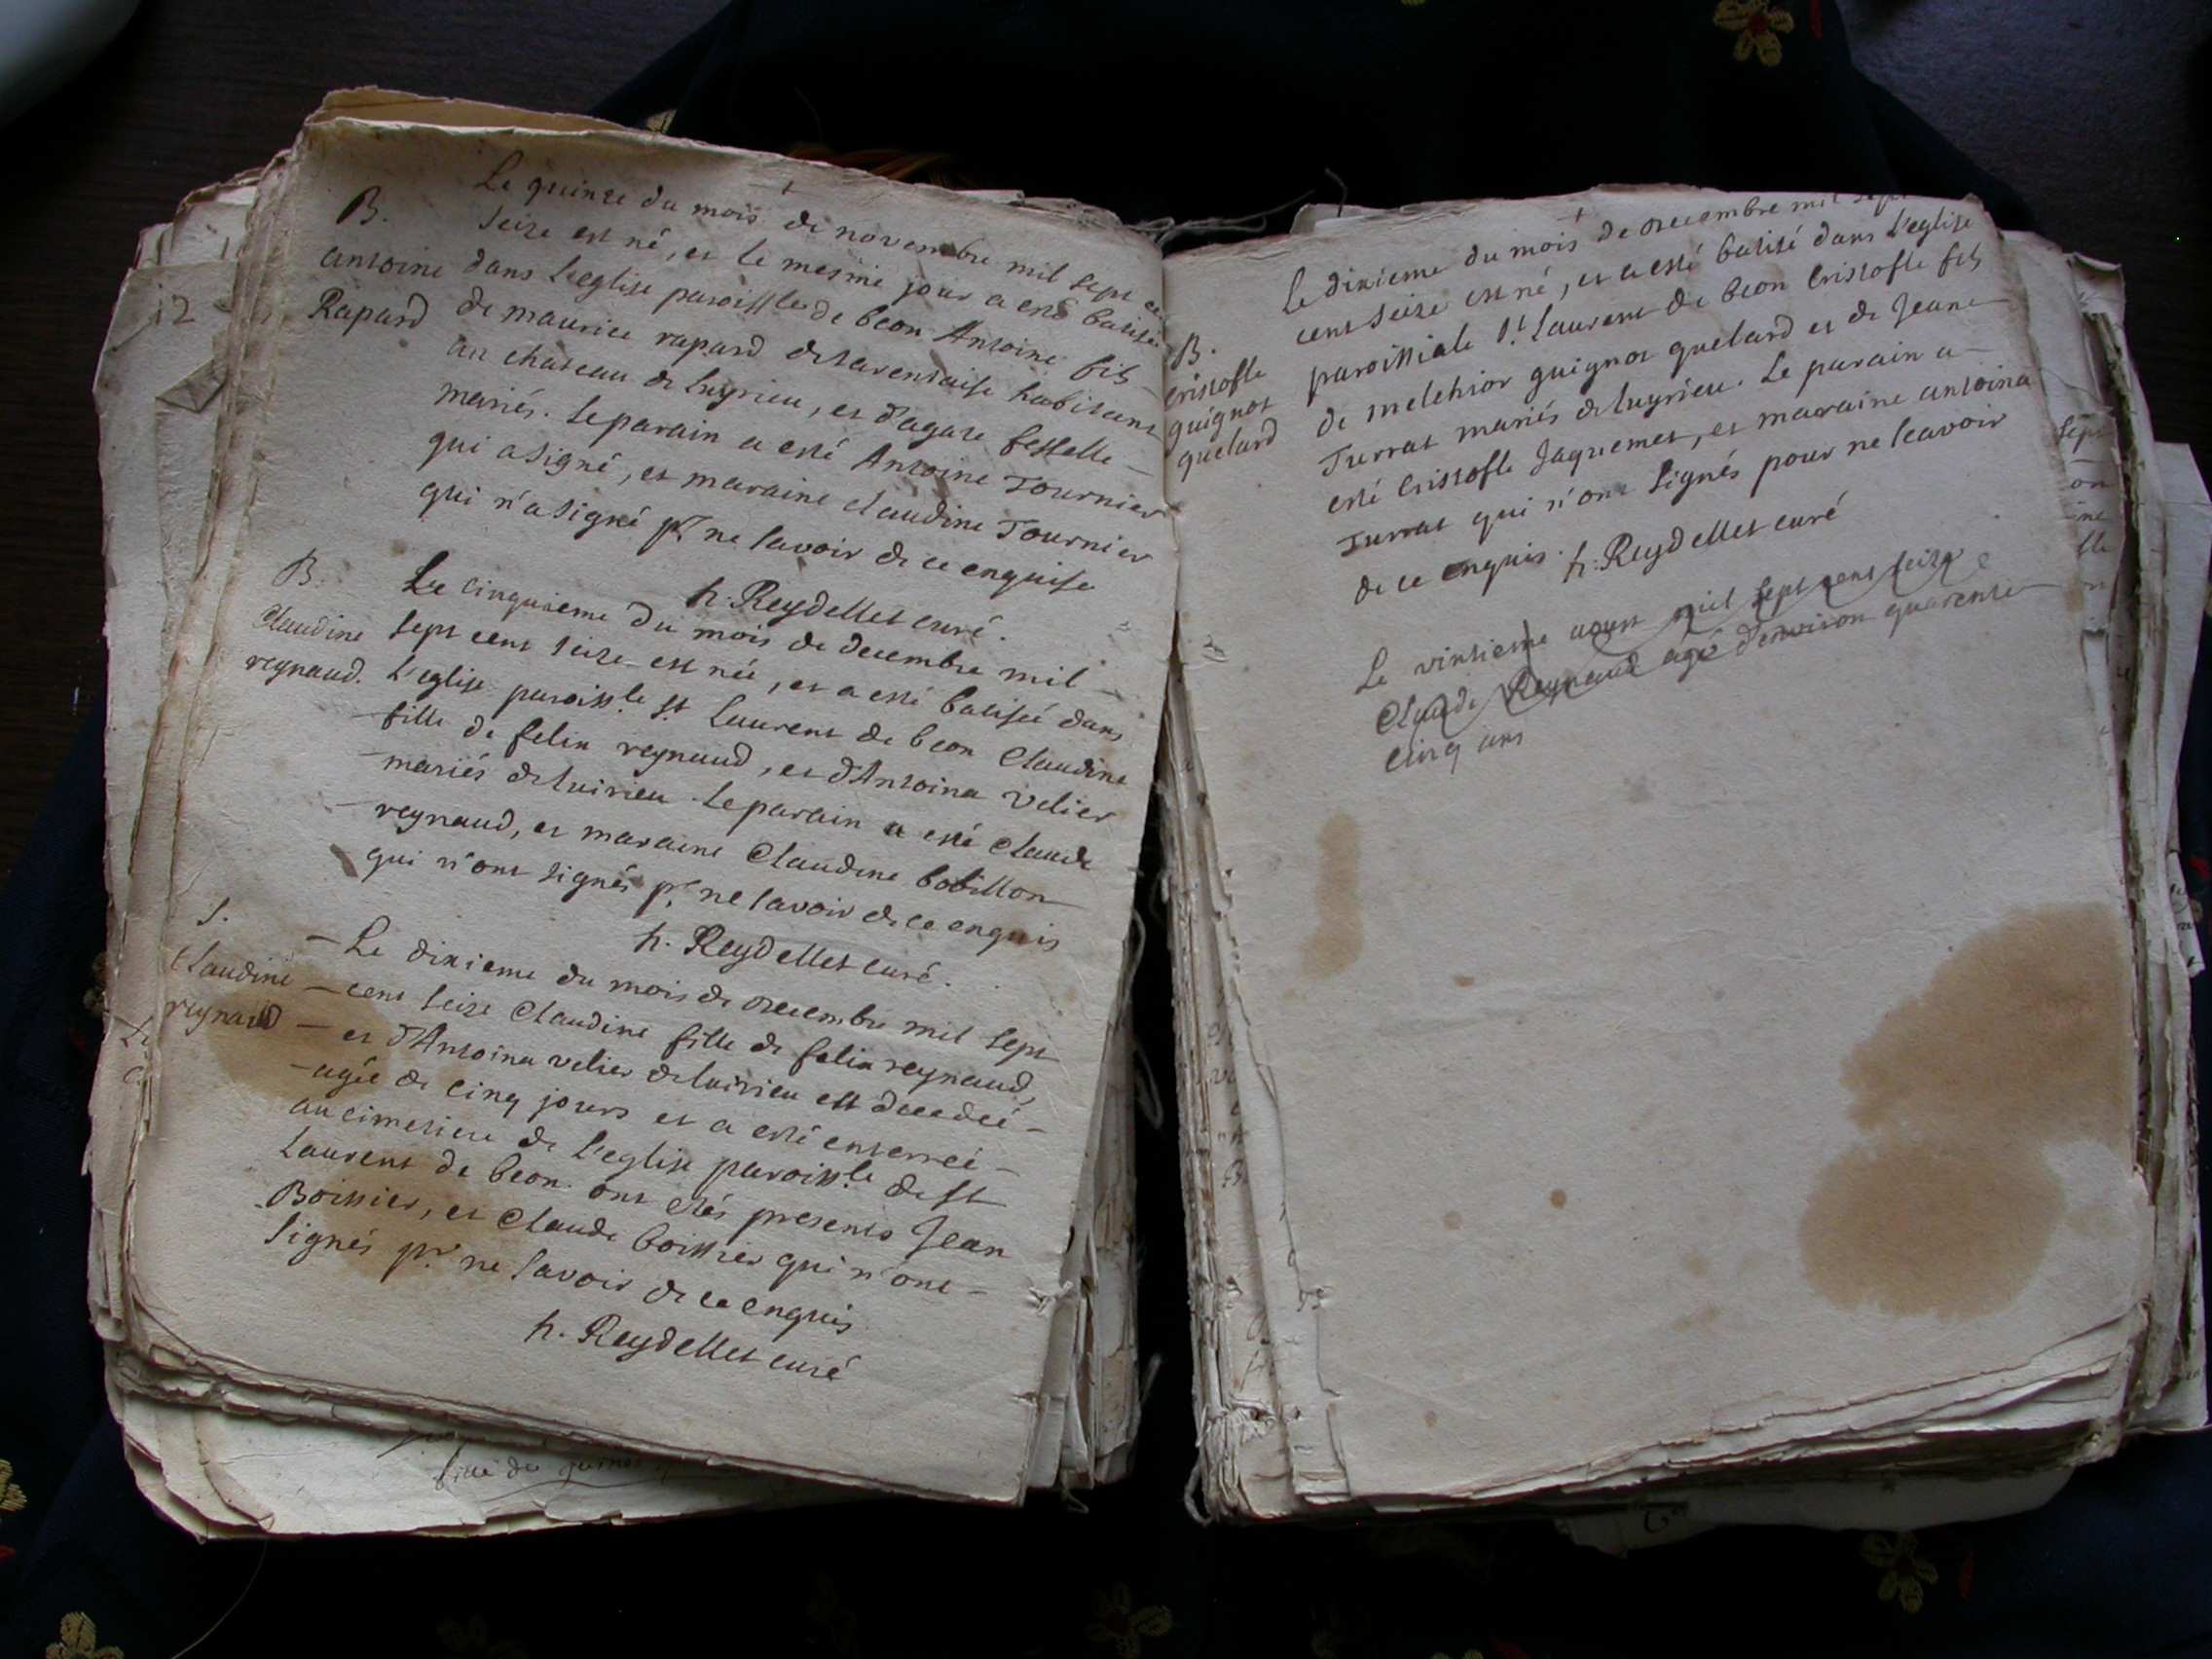 Le quinze du mois de novembre mil sept ce
B. seize est né, et le mesme jour a esté batisé
antoine dans l'eglise paroissle de beon Antoine fils
Rapard de maurice rapard de tarentaise habitant
au chateau de luyrieu, et d'agate festelle
mariés. le parain a esté Antoine Tournier
qui a signé, et maraine claudine Tournier
qui n'a signé pr. ne savoir de ce enquise
h. Reydellet curé.
B. Le cinquieme du mois de decembre mil
Claudine sept cent seize est née, et a esté batisée dans
reynaud. l'eglise paroissle st laurent de beon Claudine
fille de felix reynaud, et d'Antoina velier
mariés de luirieu. le parain a esté claude
reynaud, et maraine Claudine bobillon
qui n'ont signés pr. ne savoir de ce enquis
h. Reydellet curé.
S. Le dixieme du mois de decembre mil sept
Claudine cent seize Claudine fille de felix reynaud,
reynaud et d'Antoina velier de luirieu est decedeé
ageé de cinq jours et a esté enterreé
au cimetiere de l'eglise paroissle de st
laurent de beon. ont etés presents Jean
Boissier, et Claude boissier qui n'ont
signés pr. ne savoir de ce enquis
h. Reydellet curé
12
Le dixieme du mois de decembre mil sept
B. cent seize est né, et a esté batisé dans l'eglise
cristofle paroissiale st. laurent de beon cristofle fils
guignot de melchior guignot quelard et de Jeane
quelard Turrat mariés de luyrieu. Le parain a
esté cristofle Jaquemet, et maraine antoina
Turrat qui n'ont signés pour ne scavoir
de ce enquis. h. Reydellet curé
Le vintieme aoust mil sept cent seize
Claude Reynaud agé d'environ quarente
cinq ans